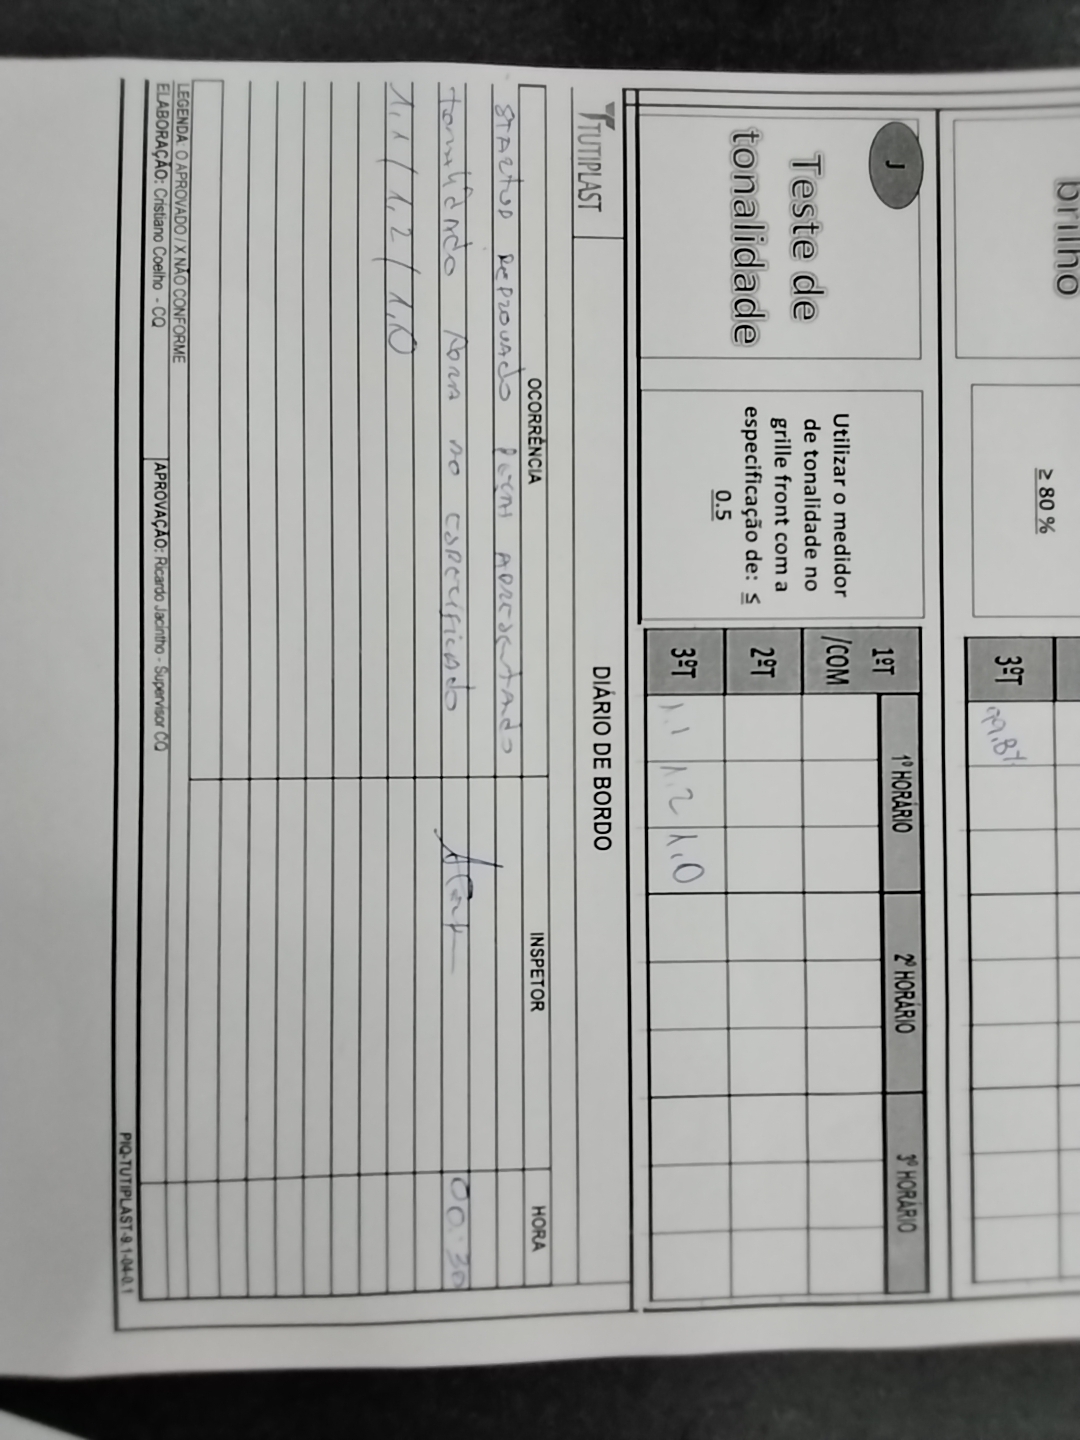 brilho
≥ 80 %
3ºT
99.8%
J
Teste de
tonalidade
Utilizar o medidor
de tonalidade no
grille front com a
especificação de: ≤
0.5
1º HORÁRIO 2º HORÁRIO 3º HORÁRIO
1ºT
/COM
2ºT
3ºT 1.1 1.2 1.0
TUTIPLAST
DIÁRIO DE BORDO
OCORRÊNCIA INSPETOR HORA
Startup reprovado peças apresentando
tonalidade fora do especificado 00:30
1,1 / 1,2 / 1,0
LEGENDA: O APROVADO / X NÃO CONFORME
ELABORAÇÃO: Cristiano Coelho - CQ APROVAÇÃO: Ricardo Jacintho - Supervisor CQ
PIQ-TUTIPLAST-9.1-04-0.1